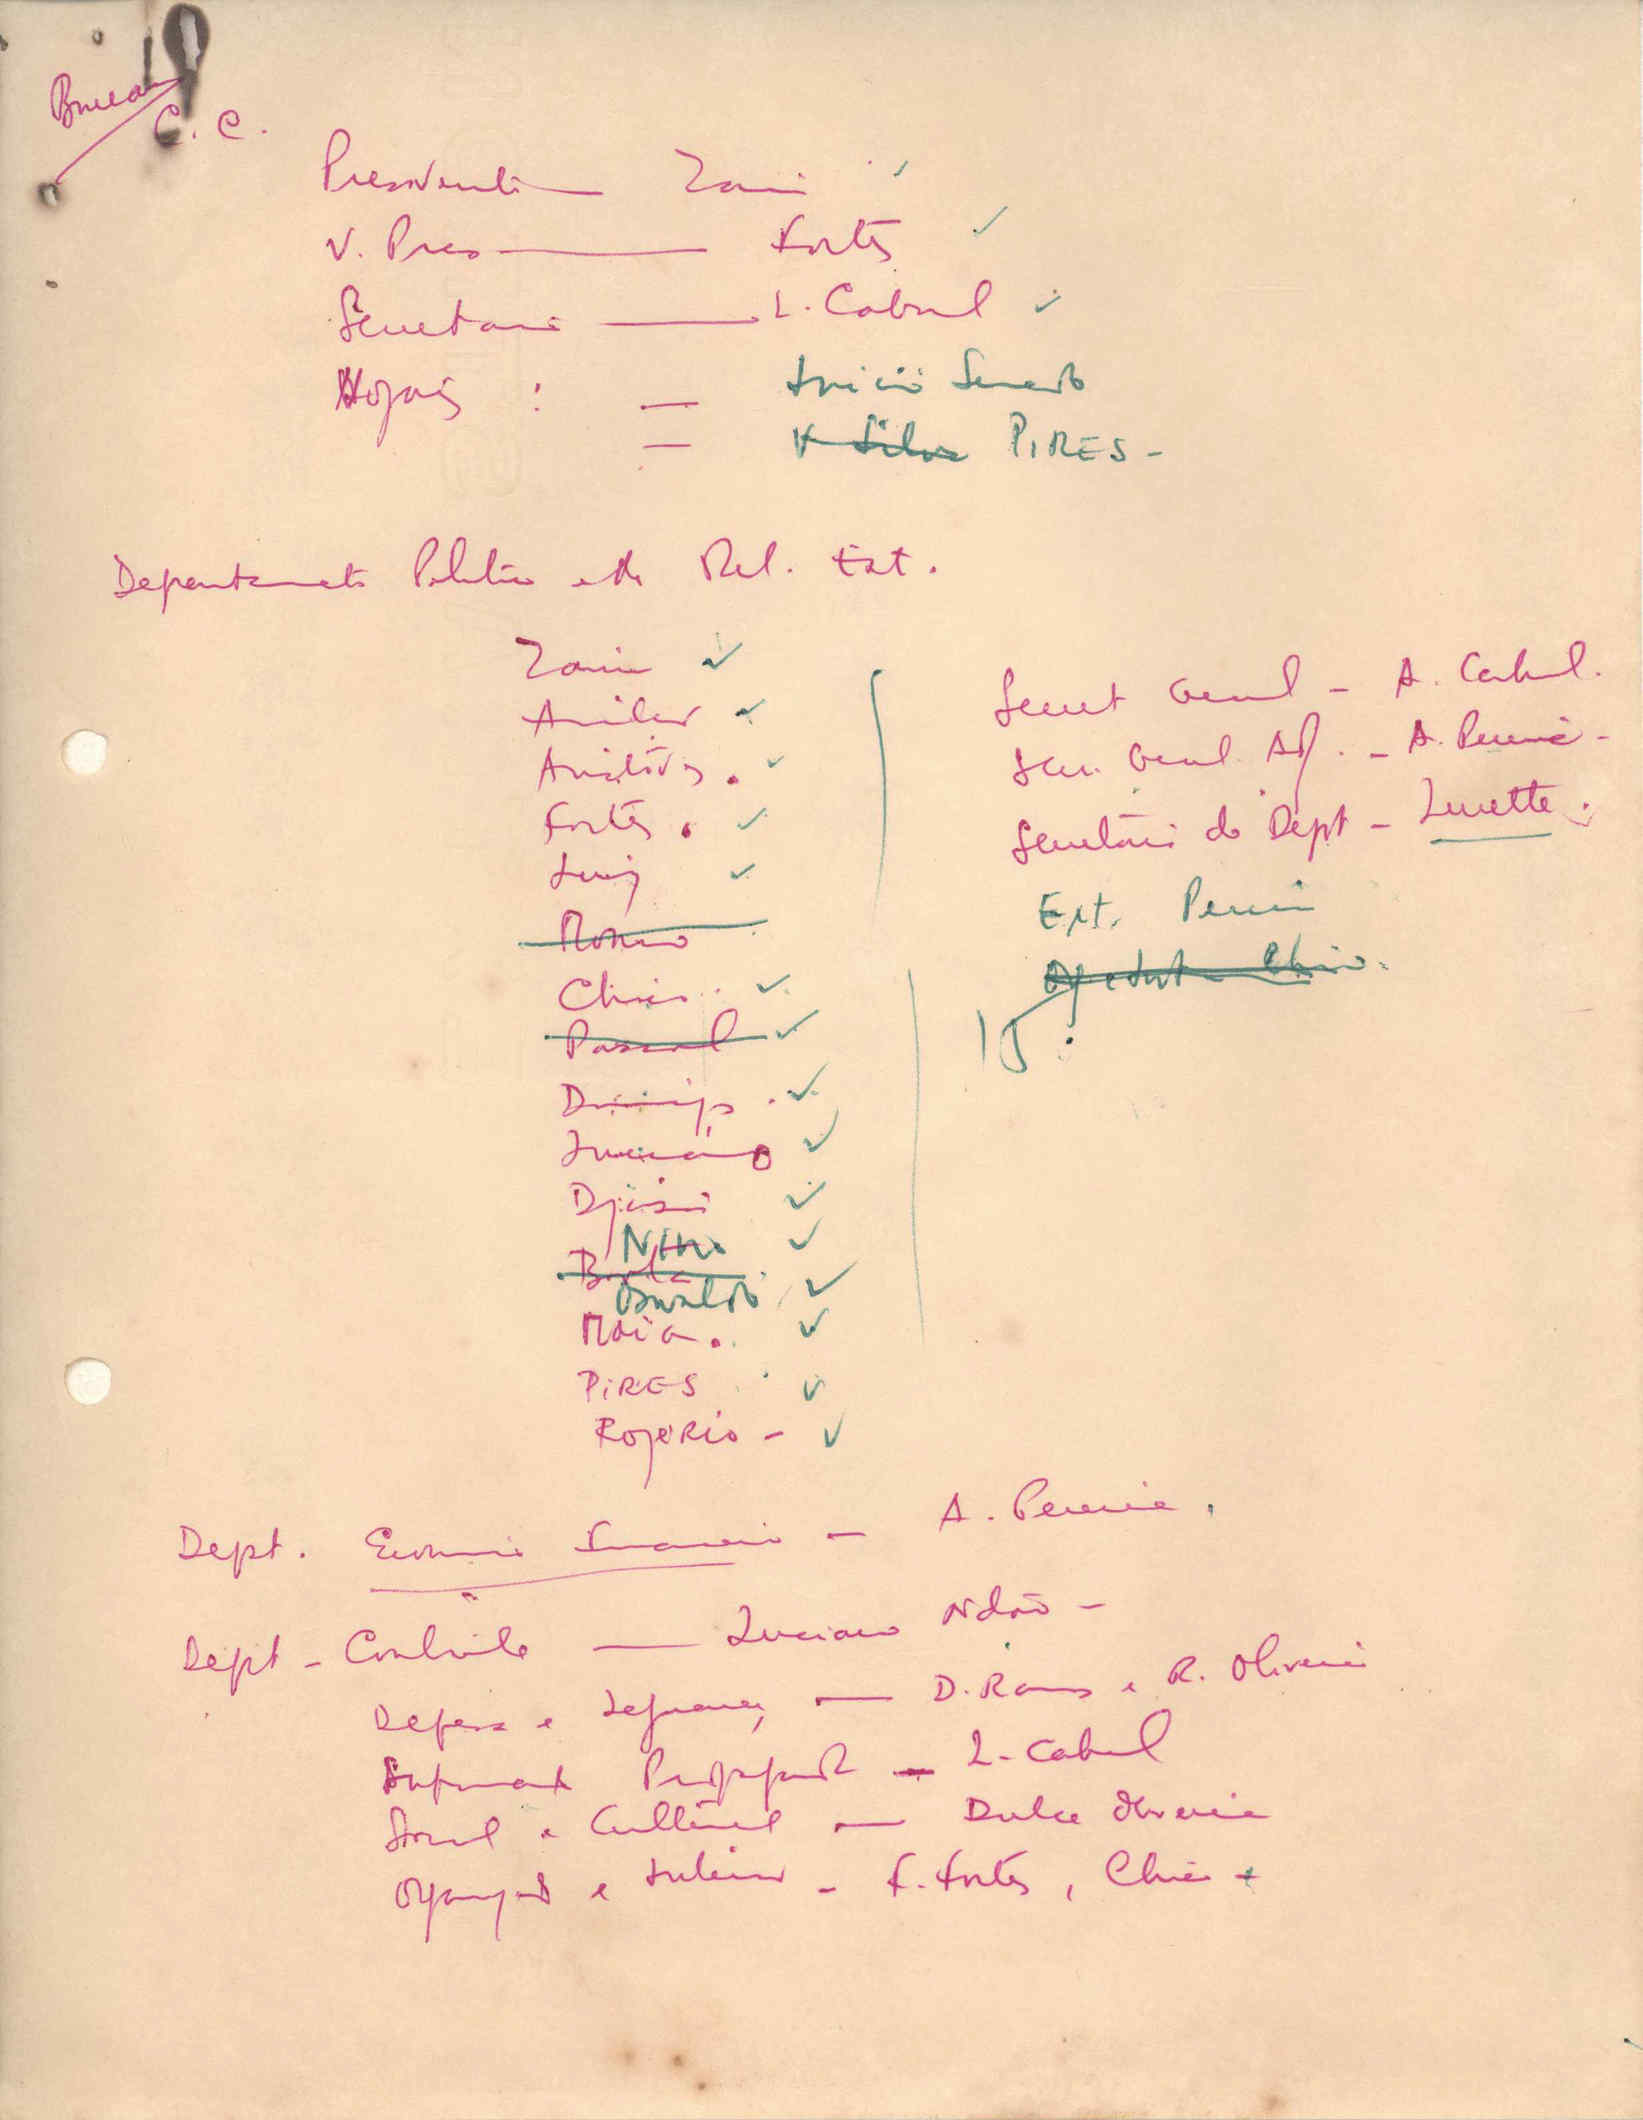 Bureau
C. C.
Presidente — Zain ✓
V. Pres — Fortes ✓
Secretario — L. Cabral ✓
: —
— V Silva PIRES -
Departamento Politico e de Rel. Ext.
Zain ✓
Aristides . ✓
Fortes . ✓
Luiz ✓
Chico . ✓
Pascoal ✓
Domingos . ✓
Luciano ✓
Djassi ✓
Nino ✓
Osvaldo ✓
Maia . ✓
PIRES ✓
ROGÉRIO - ✓
Secret Geral - A. Cabral.
Sec. Geral Adj. - A. Pereira -
Secretário do Dept - Lucette.
Ext. Pereira
15
Dept. Economia Financeiro - A. Pereira.
Dept - Contrôle — Luciano Ndão -
Defesa e Segurança — D. Ramos e R. Oliveira
Informat Propagand - L. Cabral
Social e Cultural — Dulce Oliveira
Organização e Interior - F. Fortes, Chico +